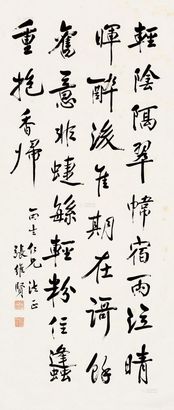 輕陰隔翠幃宿雨泣晴
暉醉後佳期在語餘
舊意非蜂䗽輕粉住
重抱香歸
仁兄法正
張維賢